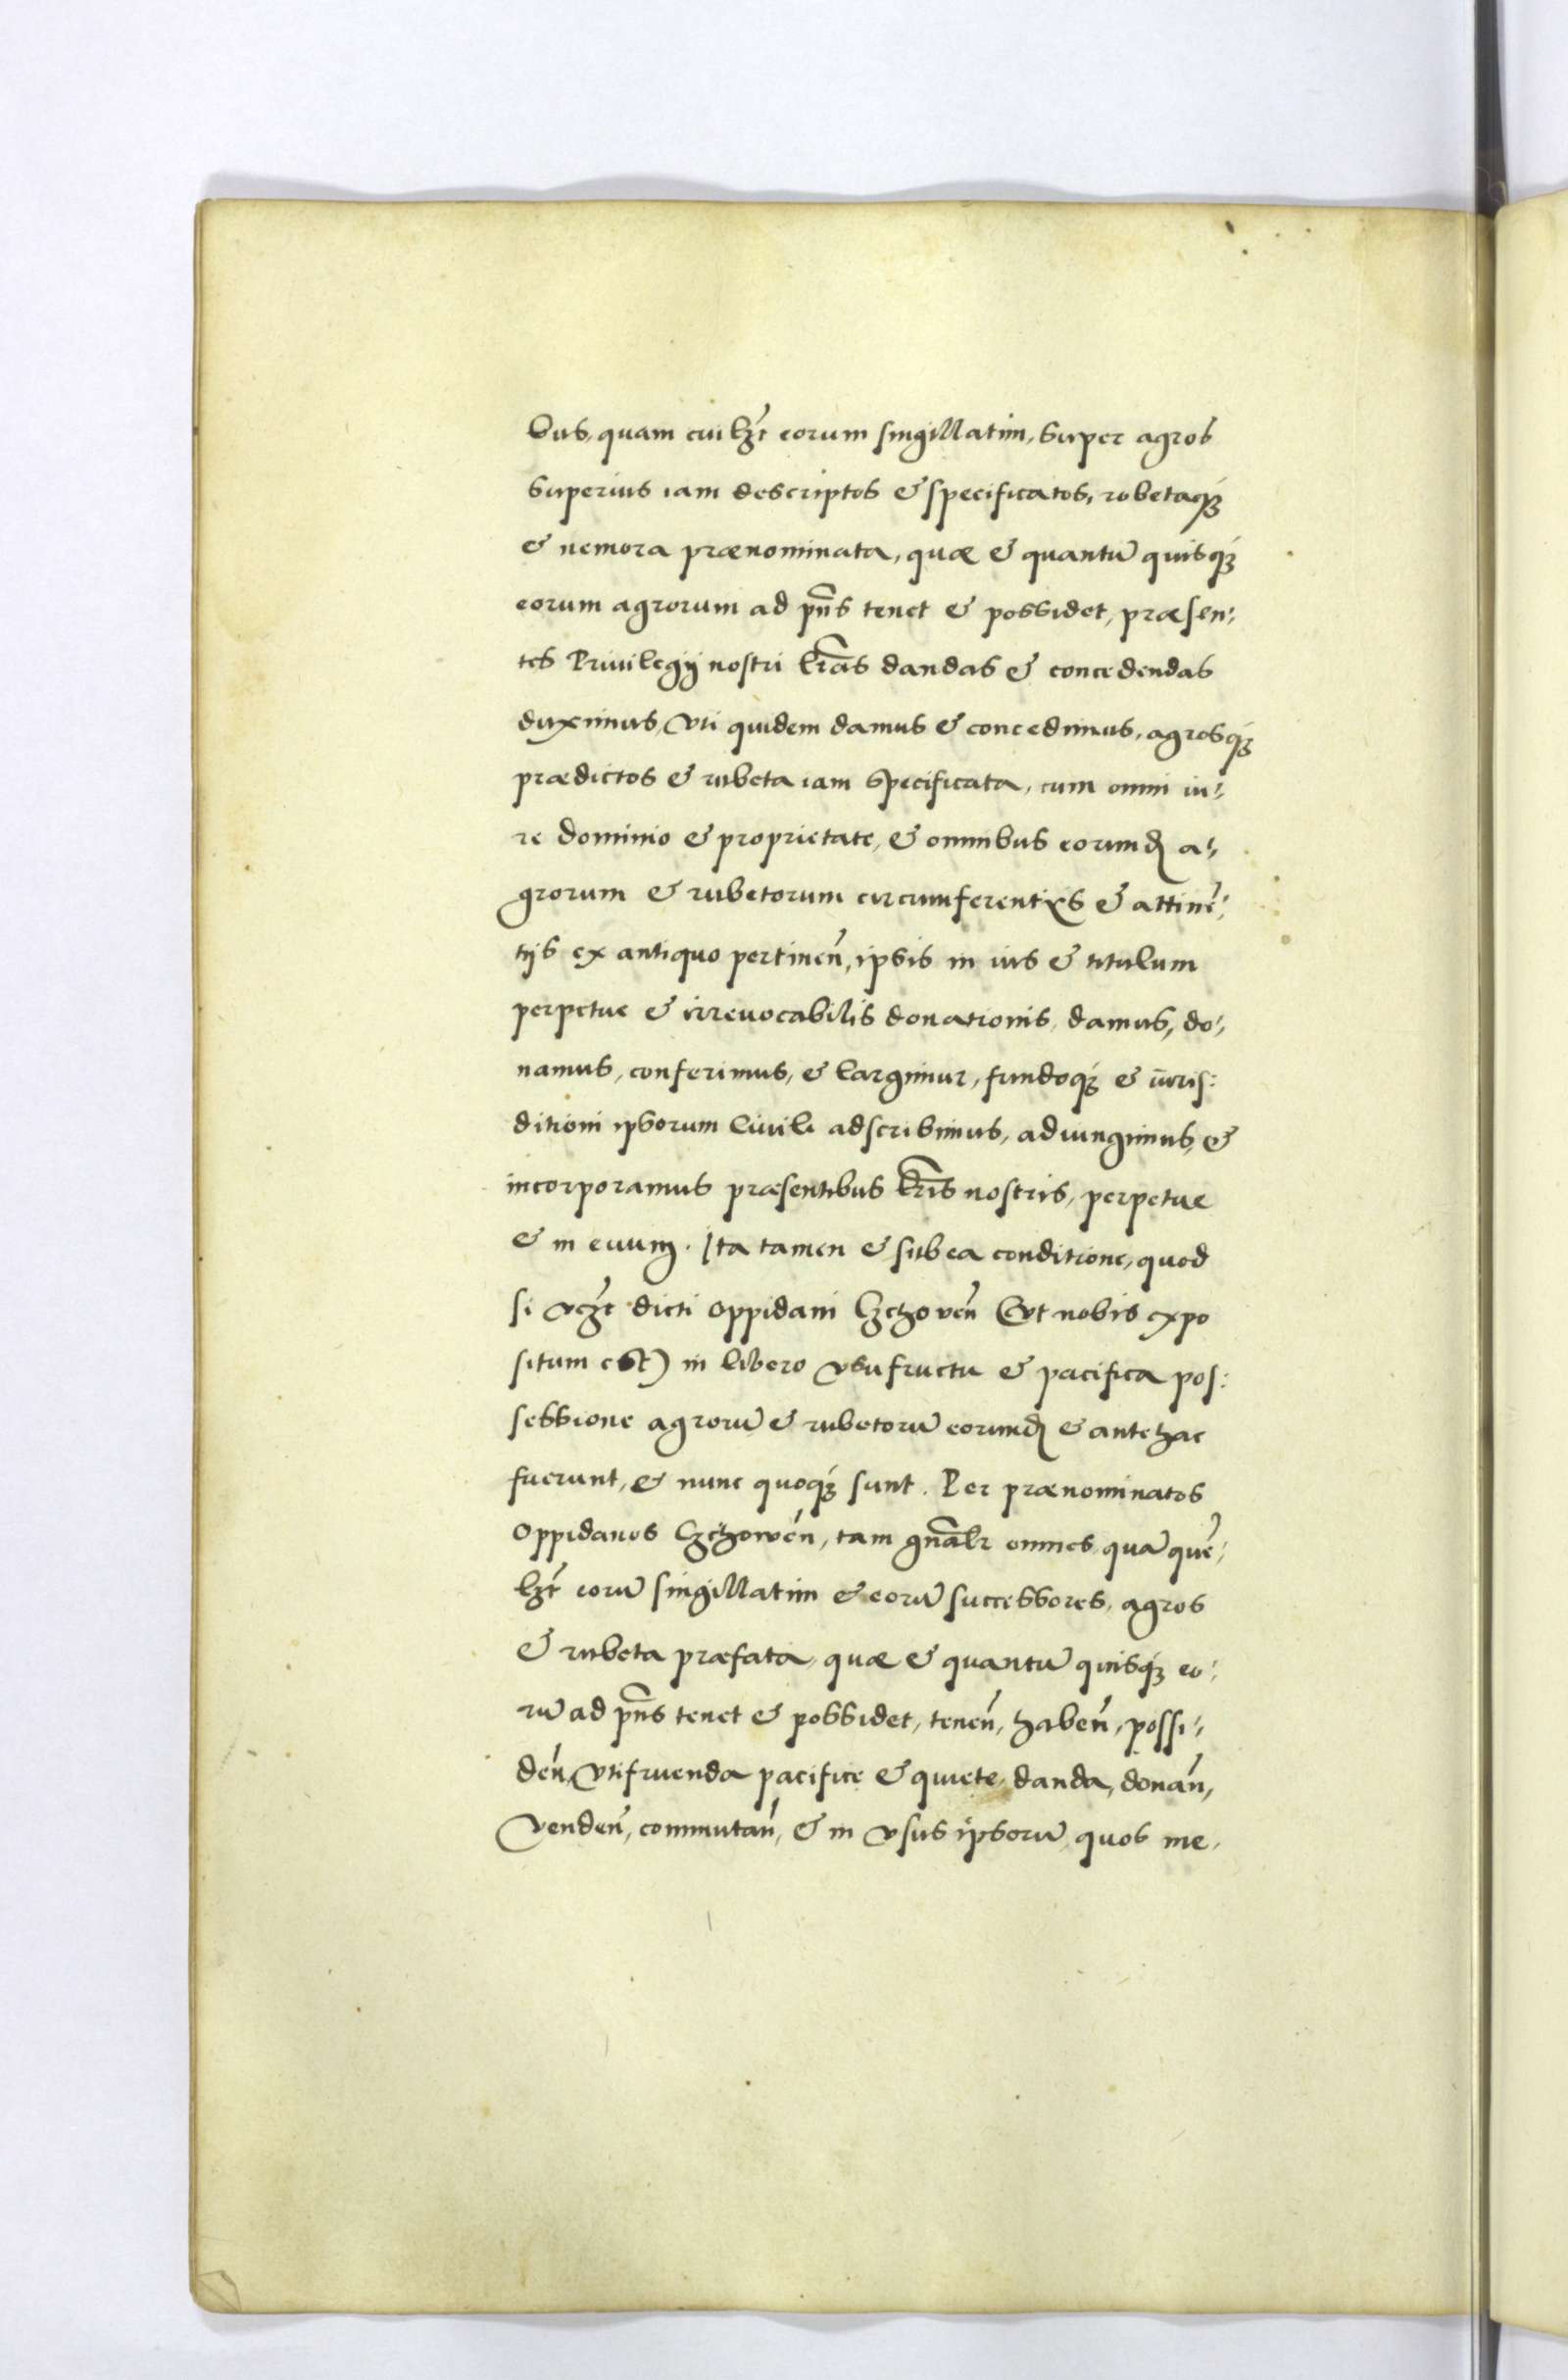 bus, quam cuilȝt eorum singillatim, super agros
superius iam descriptos & specificatos, robetaqȝ
& nemora prænominata, quæ & quantū quisqȝ
eorum agrorum ad pn̄s tenet & possidet, præsen-
tes Priuilegij nostri lr̄as dandas & concedendas
duximus, vti quidem damus & concedimus, agrosqȝ
prædictos & rubeta iam specificata, cum omni iu-
re dominio & proprietate, & omnibus eorumd̄ a-
grorum & rubetorum circumferentijs & attinē-
tijs ex antiquo pertinen̄, ipsis in ius & titulum
perpetue & irreuocabilis donationis, damus, do-
namus, conferimus, & largimur, fundoqȝ & iuris:
ditioni ipsorum Ciuili adscribimus, adiungimus, &
incorporamus præsentibus lr̄is nostris, perpetue
& in euum. Ita tamen & sub ea conditione, quod
si vcȝt dicti oppidani Czchoven̄ (vt nobis expo
situm est) in libero vsufructu & pacifica pos:
sessione agrorū & rubetorū eorumd̄ & antehac
fuerunt, & nunc quoqȝ sunt. Per prænominatos
Oppidanos Czchowen̄, tam gn̄alr omnes, quā quē-
lȝt eorū singillatim & eorū successores, agros
& rubeta præfata, quæ & quantū quisqȝ eo-
rū ad pn̄s tenet & possidet, tenen̄, haben̄, possi-
den̄, vtifruenda pacifice & quiete, danda, donan̄,
venden̄, commutan̄, & in vsus ipsorū quos me-